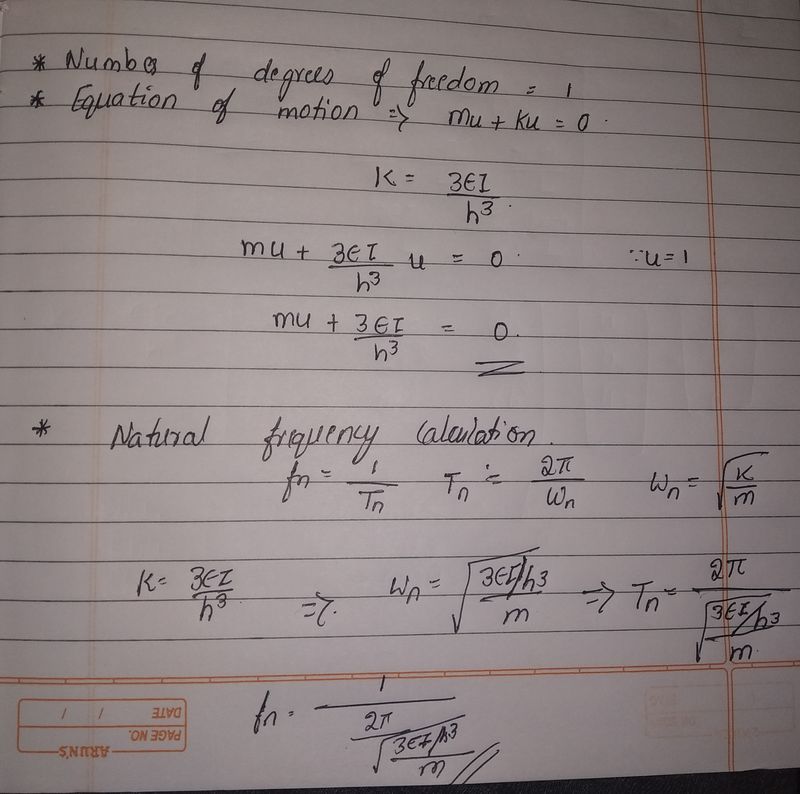 * Number of degrees of freedom = 1
* Equation of motion => mu + ku = 0.
K = 3EI/h³.
mu + 3EI/h³ u = 0. ∵u=1
mu + 3EI/h³ = 0.
* Natural frequency Calculation.
fn = 1/Tn Tn = 2π/ωn ωn = √(K/m)
K = 3EI/h³ =>. ωn = √((3EI/h³)/m) => Tn = 2π/√((3EI/h³)/m)
fn = 1/(2π/√((3EI/h³)/m))
ARUN'S
PAGE NO.
DATE / /